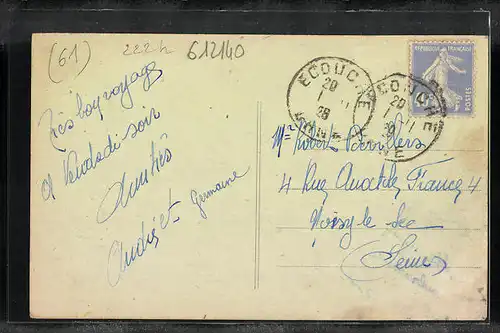 (61) 222h 612140
Très bon voyage
A Vendredi soir
Amitiés
André et Germaine
ECOUCHE
20
38
ECOUCHE
20
REPUBLIQUE FRANÇAISE
POSTES
Mr Robert
4 Rue Anatole France 4
Noisy le Sec
(Seine)